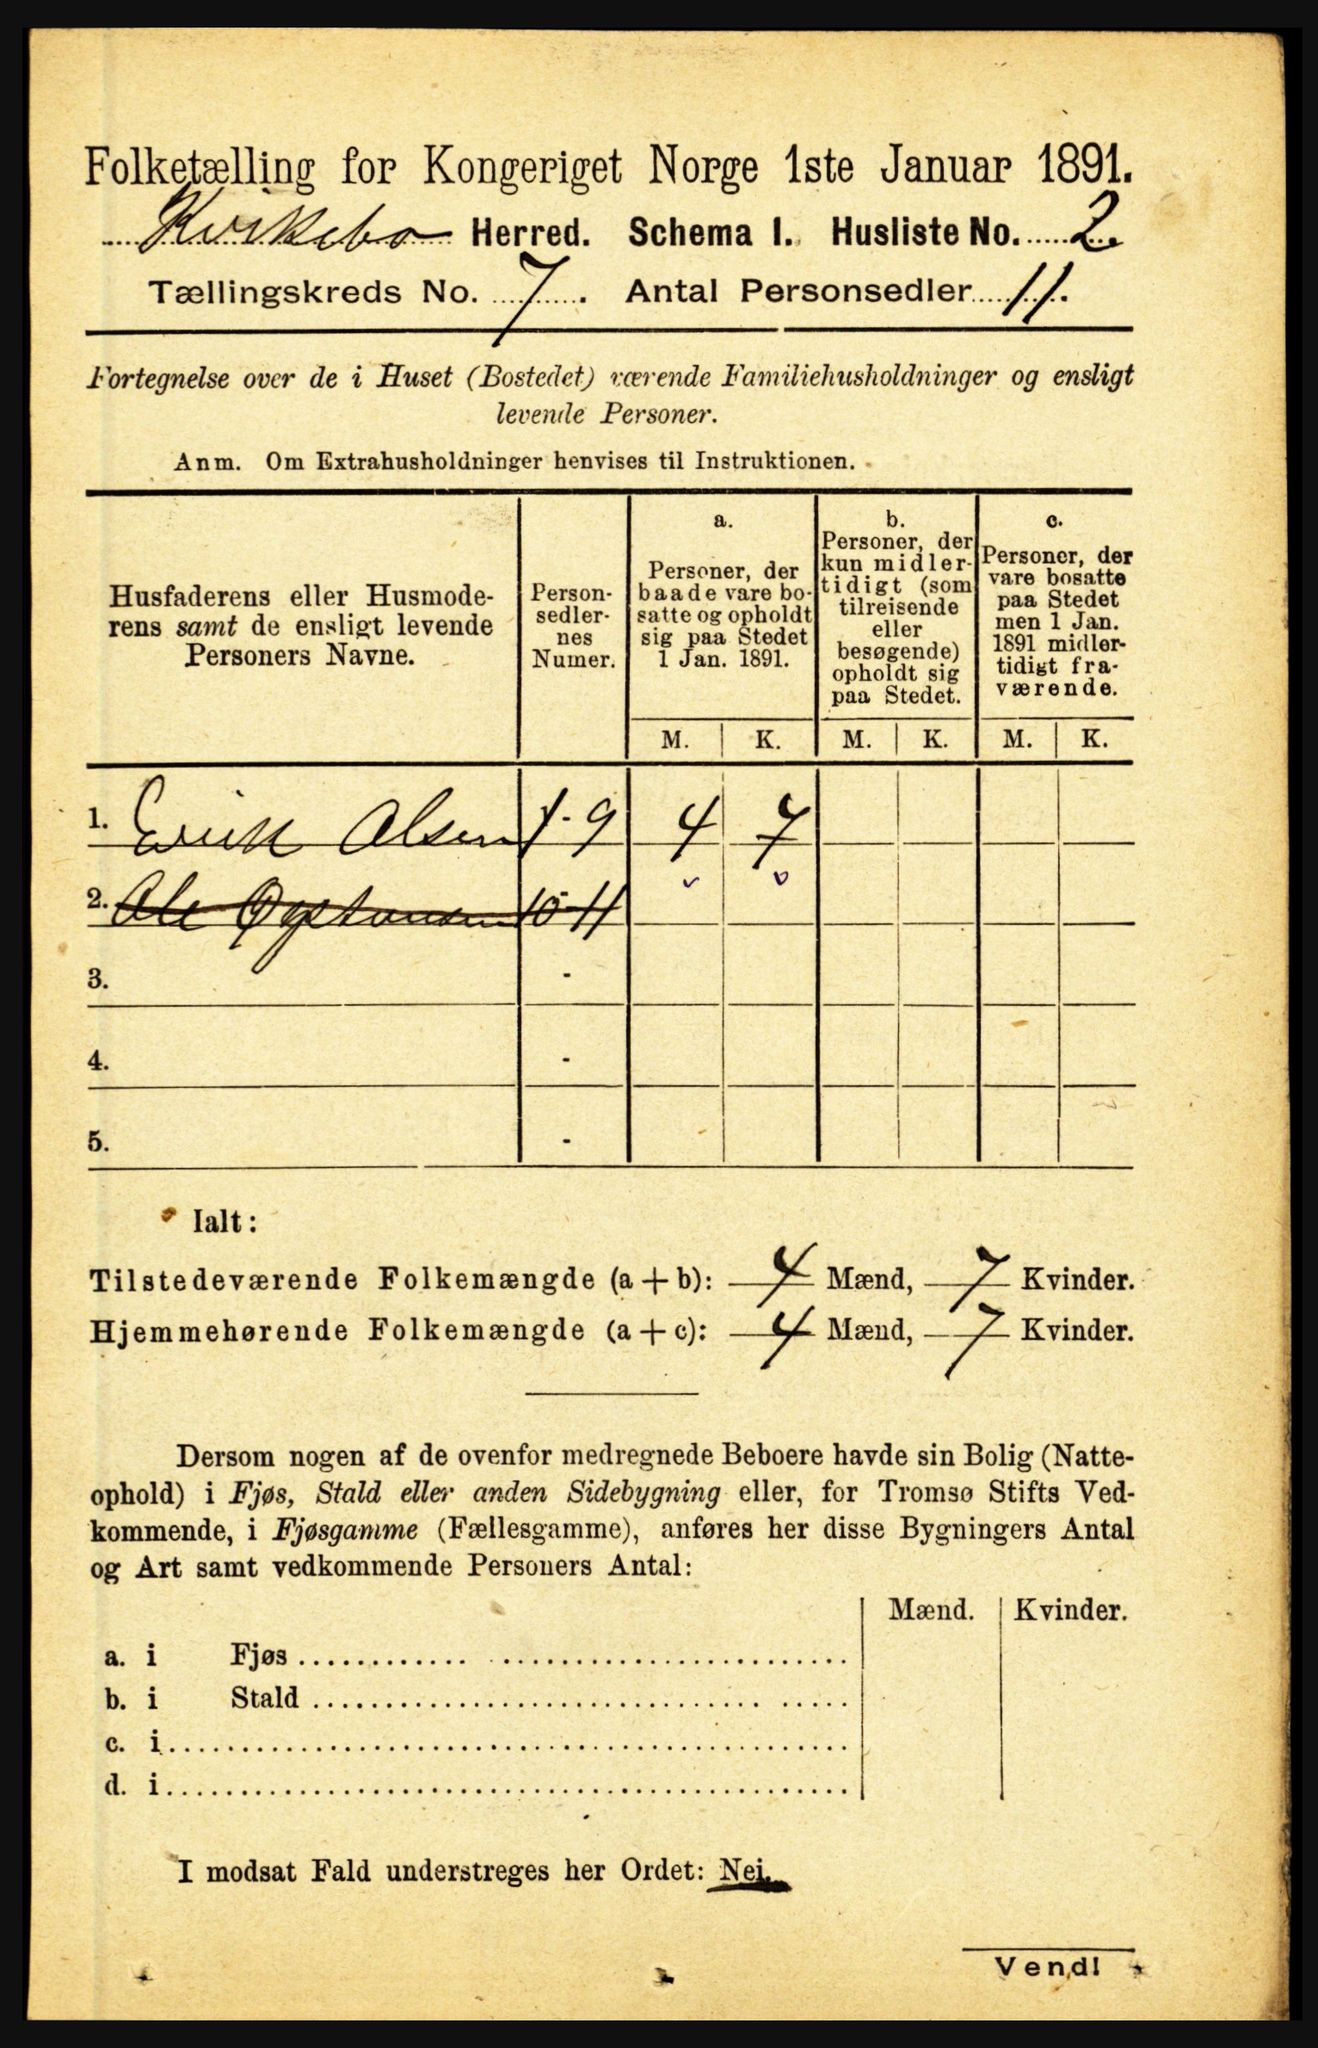 Folketælling for Kongeriget Norge 1ste Januar 1891.
Kirkebø Herred. Schema I. Husliste No. 2.
Tællingskreds No. 7. Antal Personsedler 11.
Fortegnelse over de i Huset (Bostedet) værende Familiehusholdninger og ensligt
levende Personer.
Anm. Om Extrahusholdninger henvises til Instruktionen.
Husfaderens eller Husmode-
rens samt de ensligt levende
Personers Navne.
Person-
sedler-
nes
Numer.
a.
Personer, der
baade vare bo-
satte og opholdt
sig paa Stedet
1 Jan. 1891.
b.
Personer, der
kun midler-
tidigt (som
tilreisende
eller
besøgende)
opholdt sig
paa Stedet.
c.
Personer, der
vare bosatte
paa Stedet
men 1 Jan.
1891 midler-
tidigt fra-
værende.
M. K. M. K. M. K.
1. Erik Olsen 1-9 4 7
2. Ole 10-11
3. -
4. -
5. -
Ialt:
Tilstedeværende Folkemængde (a+b): 4 Mænd, 7 Kvinder.
Hjemmehørende Folkemængde (a+c): 4 Mænd, 7 Kvinder.
Dersom nogen af de ovenfor medregnede Beboere havde sin Bolig (Natte-
ophold) i Fjøs, Stald eller anden Sidebygning eller, for Tromsø Stifts Ved-
kommende, i Fjøsgamme (Fællesgamme), anføres her disse Bygningers Antal
og Art samt vedkommende Personers Antal:
Mænd. Kvinder.
a. i Fjøs
b. i Stald
c. i
d. i
I modsat Fald understreges her Ordet: Nei.
Vend!